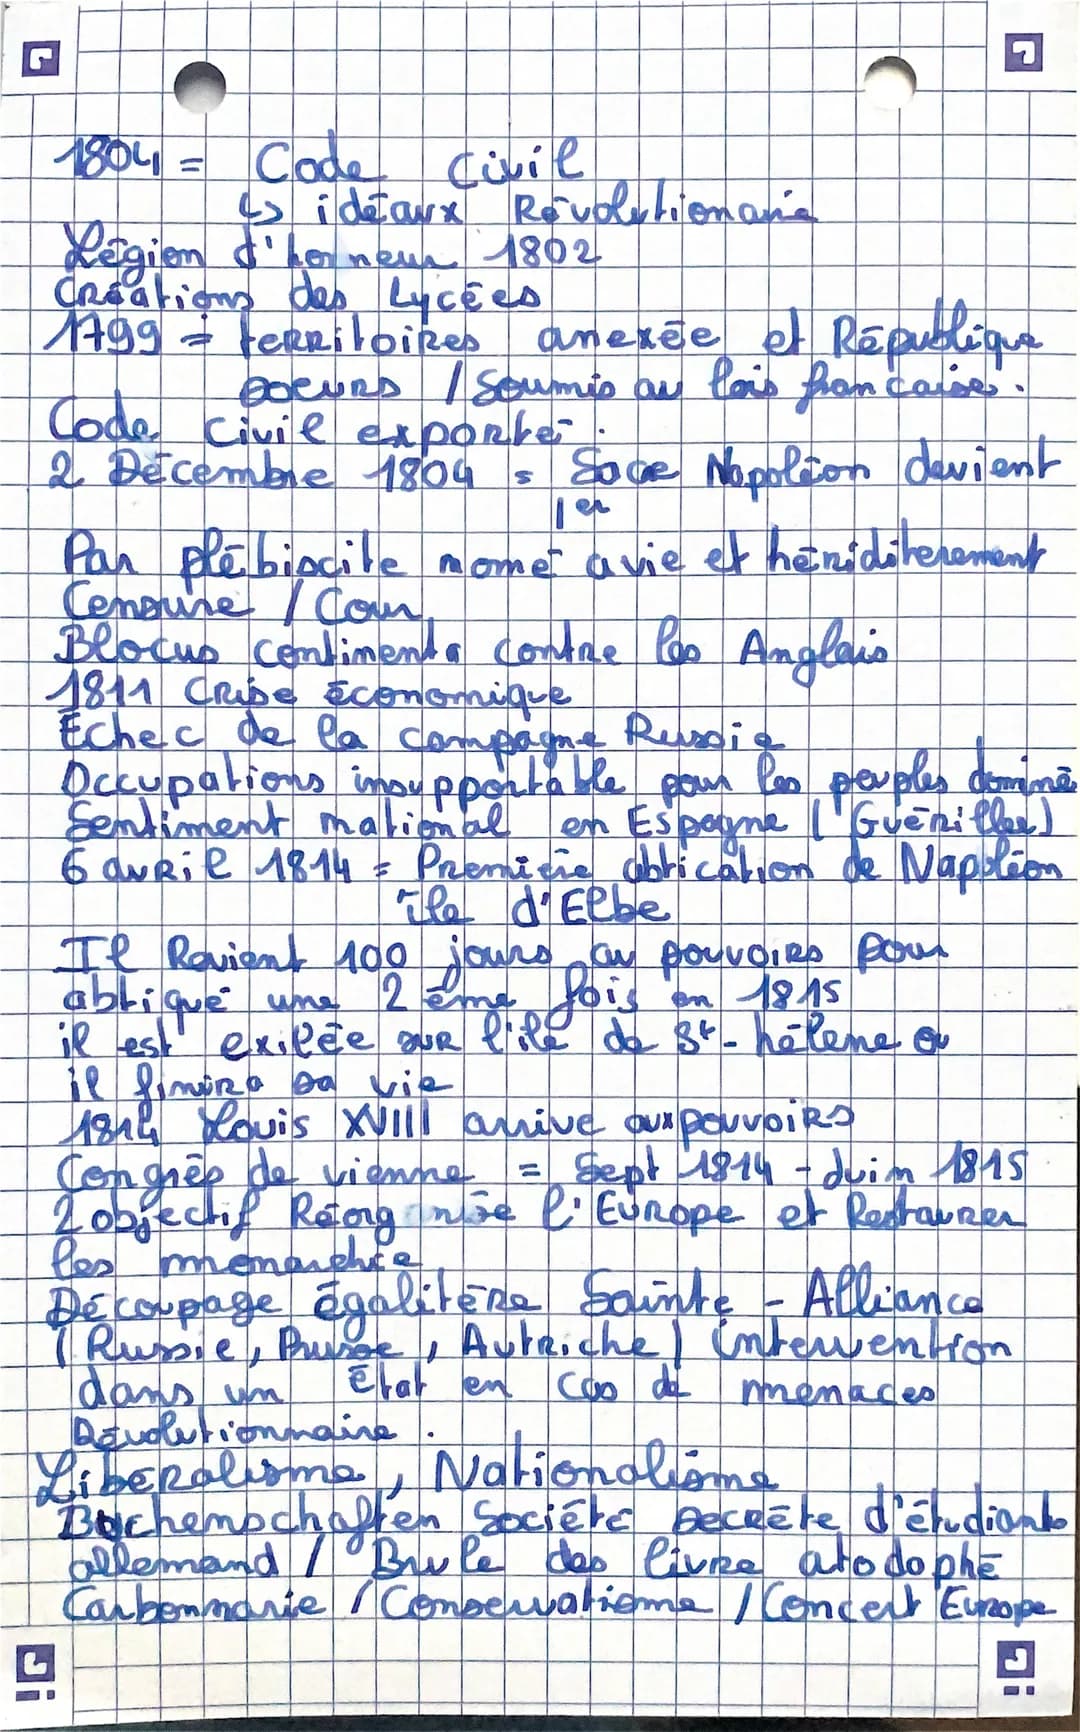 1804 = Code Civil
↳ idéaux Révolutionarie
Légion d'honneur 1802
Créations des Lycées
1799 = territoires anexée et République
soeurs / Soumis au lois francaise.
Code civil exporté.
2 Décembre 1804 = Sace Napoléon devient
1er
Par plébiscite nomé a vie et hériditerement
Censure / Cour
Blocus continenta contre les Anglais
1811 Crise économique
Echec de la campagne Russie
Occupations insupportable pour les peuples dominé
Sentiment national en Espagne (Guérillas)
6 avril 1814 = Première abtication de Napoléon
île d'Elbe
Il Revient 100 jours au pouvoirs pour
abtiqué une 2ème fois en 1815
il est exilée sur l'île de St-hélene ou
il finira sa vie
1814 Louis XVIII arrive aux pouvoirs
Congrès de vienne = Sept 1814 - Juin 1815
2 objectif Réorganisée l'Europe et Restaurer
les monarchie
Découpage égalitère Sainte - Alliance
(Russie, Prusse, Autriche) intervention
dans un État en cas de menaces
Révolutionnaire.
Libéralisme, Nationalisme
Buchenschaften Société secrète d'étudiants
allemand / Brule des livre
Carbonnarie / Conservatisme / Concert Europe